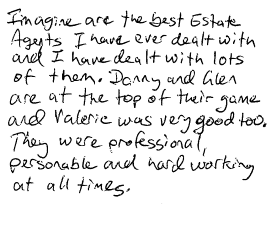 Imagine are the best Estate
Agents I have ever dealt with
and I have dealt with lots
of them. Danny and Glen
are at the top of their game
and Valerie was very good too.
They were professional,
personable and hard working
at all times.